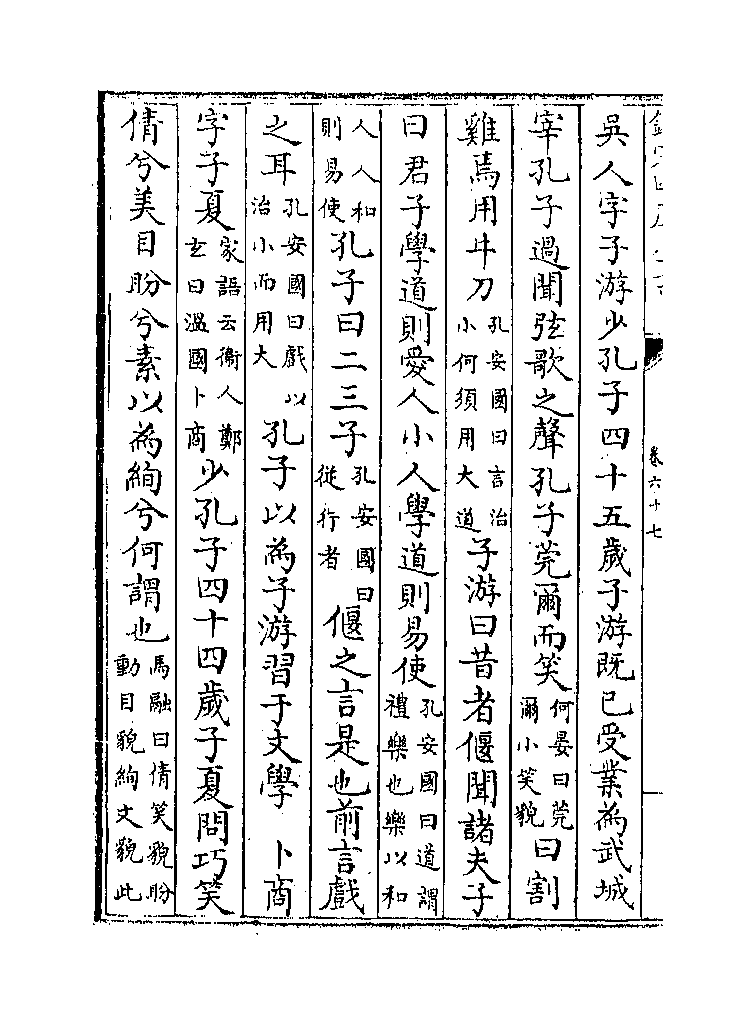 卷六十七
吳人字子游少孔子四十五歲子游既已受業為武城
宰孔子過聞弦歌之聲孔子莞爾而笑何晏曰莞爾小笑貌曰割
雞焉用牛刀孔安國曰言治小何須用大道子游曰昔者偃聞諸夫子
曰君子學道則愛人小人學道則易使孔安國曰道謂禮樂也樂以和
人人和則易使孔子曰二三子孔安國曰從行者偃之言是也前言戲
之耳孔安國曰戲以治小而用大孔子以為子游習于文學　卜商
字子夏家語云衛人鄭玄曰溫國卜商少孔子四十四歲子夏問巧笑
倩兮美目盼兮素以為絢兮何謂也馬融曰倩笑貌盼動目貌絢文貌此